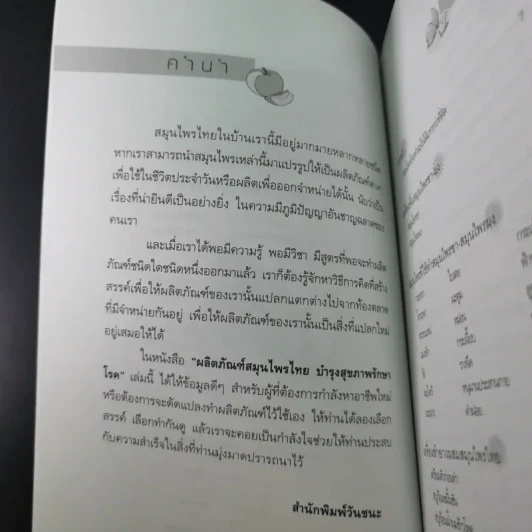 คำนำ
สมุนไพรไทยในบ้านเรานี้มีอยู่มากมายหลากหลายชนิด
หากเราสามารถนำสมุนไพรเหล่านี้มาแปรรูปให้เป็นผลิตภัณฑ์ต่างๆ
เพื่อใช้ในชีวิตประจำวันหรือผลิตเพื่อออกจำหน่ายได้นั้น นับว่าเป็น
เรื่องที่น่ายินดีเป็นอย่างยิ่ง ในความมีภูมิปัญญาอันชาญฉลาดของ
คนเรา
และเมื่อเราได้พอมีความรู้ พอมีวิชา มีสูตรที่พอจะทำผลิต
ภัณฑ์ชนิดใดชนิดหนึ่งออกมาแล้ว เราก็ต้องรู้จักหาวิธีการคิดที่สร้าง
สรรค์เพื่อให้ผลิตภัณฑ์ของเรานั้นแปลกแตกต่างไปจากท้องตลาด
ที่มีจำหน่ายกันอยู่ เพื่อให้ผลิตภัณฑ์ของเรานั้นเป็นสิ่งที่แปลกใหม่
อยู่เสมอให้ได้
ในหนังสือ "ผลิตภัณฑ์สมุนไพรไทย บำรุงสุขภาพรักษา
โรค" เล่มนี้ ได้ให้ข้อมูลดีๆ สำหรับผู้ที่ต้องการกำลังหาอาชีพใหม่
หรือต้องการจะดัดแปลงทำผลิตภัณฑ์ไว้ใช้เอง ให้ท่านได้ลองเลือก
สรรค์ เลือกทำกันดู แล้วเราจะคอยเป็นกำลังใจช่วยให้ท่านประสบ
กับความสำเร็จในสิ่งที่ท่านมุ่งมาดปรารถนาไว้
สำนักพิมพ์วันชนะ
ใบเตย
มะตูม
หม่อน
กระเจี๊ยบ
หนุมานประสานกาย
คำฝอย